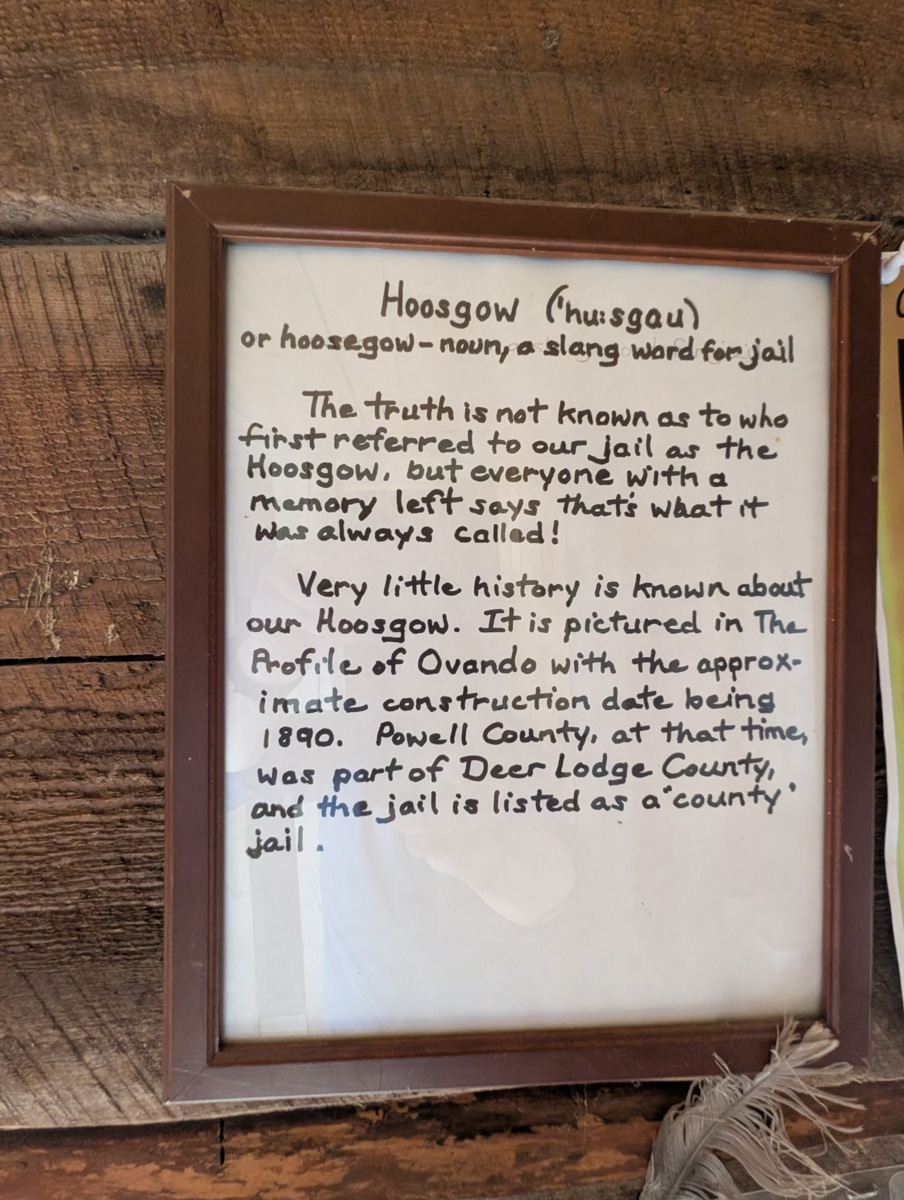 Hoosgow ('hu:sgau)
or hoosegow - noun, a slang word for jail
The truth is not known as to who
first referred to our jail as the
Hoosgow, but everyone with a
memory left says that's what it
was always called!
Very little history is known about
our Hoosgow. It is pictured in The
Profile of Ovando with the approx-
imate construction date being
1890. Powell County, at that time,
was part of Deer Lodge County,
and the jail is listed as a "county"
jail.